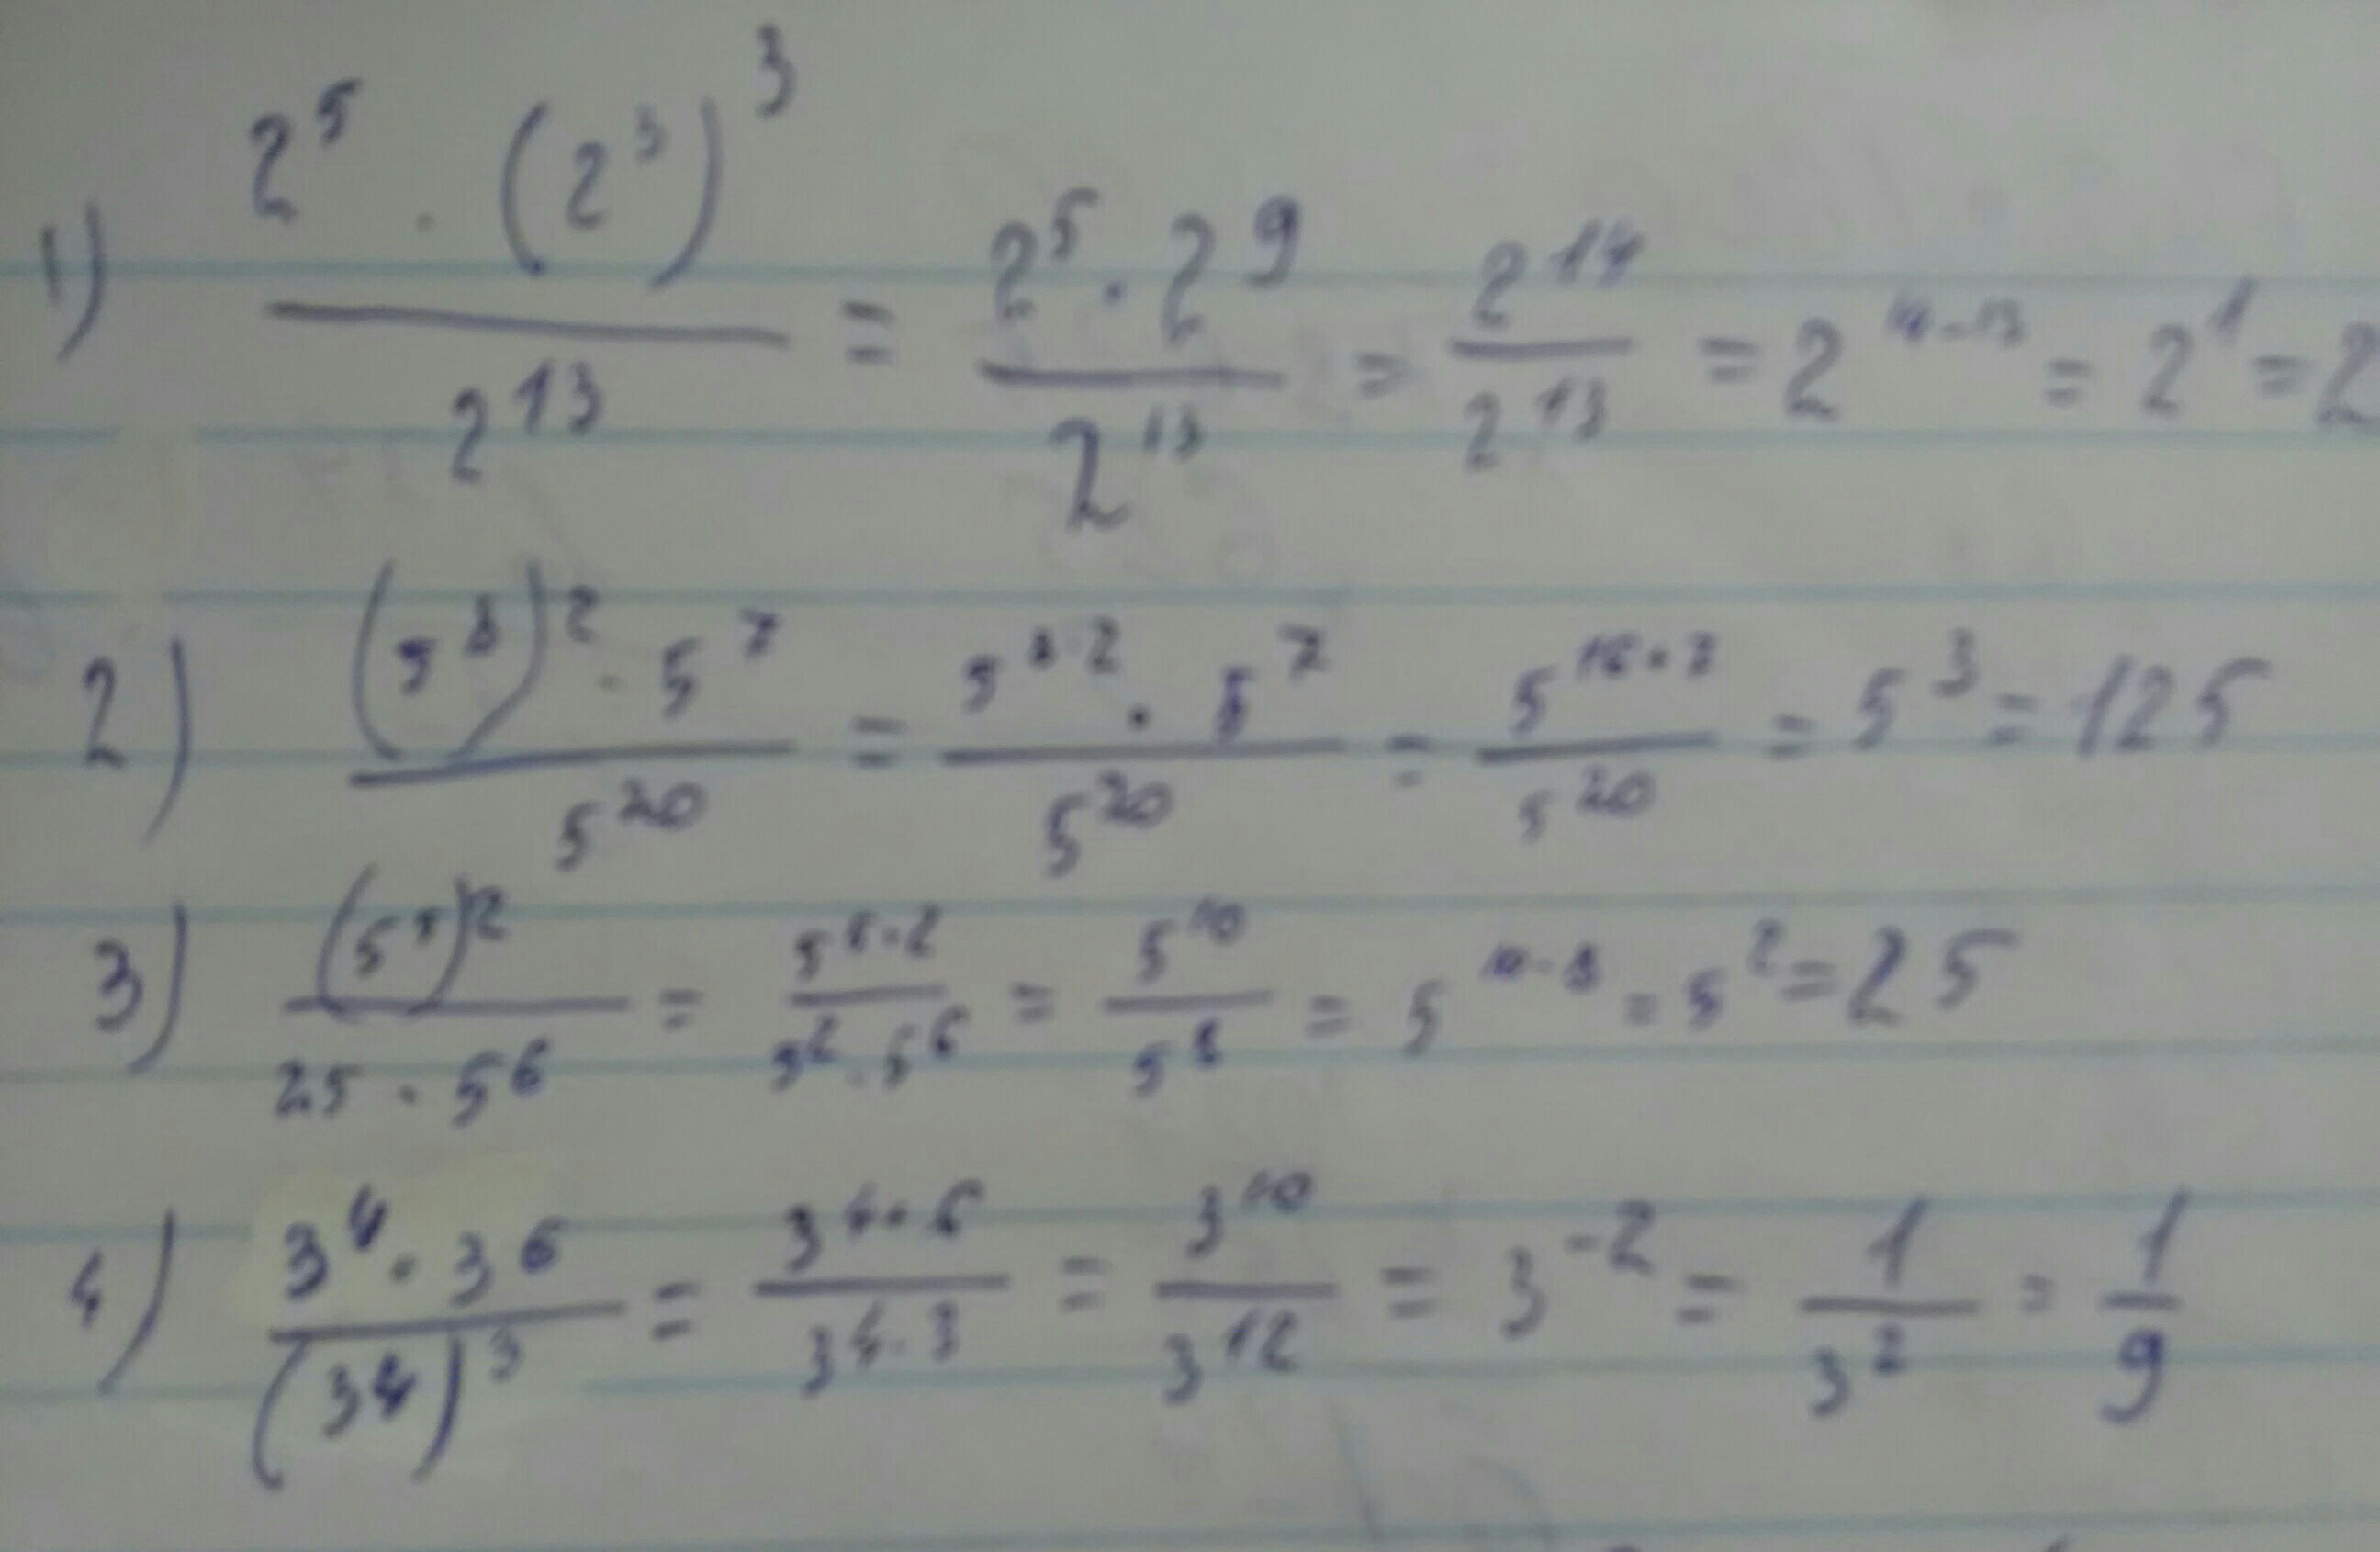 1) \frac{2^5 · (2^3)^3}{2^{13}} = \frac{2^5 · 2^9}{2^{13}} = \frac{2^{14}}{2^{13}} = 2^{14-13} = 2^1 = 2
2) \frac{(5^8)^2 · 5^7}{5^{20}} = \frac{5^{8·2} · 5^7}{5^{20}} = \frac{5^{16+7}}{5^{20}} = 5^3 = 125
3) \frac{(5^5)^2}{25 · 5^6} = \frac{5^{5·2}}{5^2 · 5^6} = \frac{5^{10}}{5^8} = 5^{10-8} = 5^2 = 25
4) \frac{3^4 · 3^6}{(3^4)^3} = \frac{3^{4+6}}{3^{4·3}} = \frac{3^{10}}{3^{12}} = 3^{-2} = \frac{1}{3^2} = \frac{1}{9}